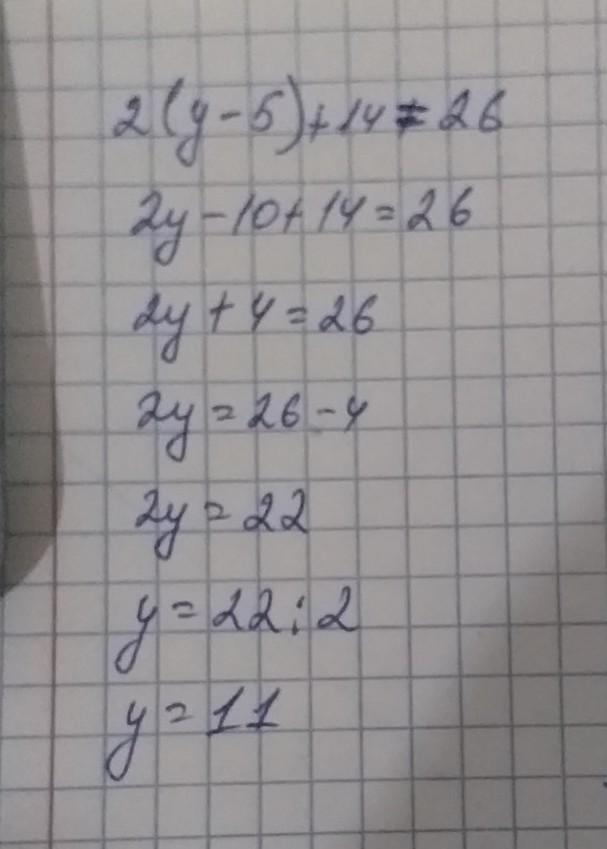 2(y-5)+14=26
2y-10+14=26
2y+4=26
2y=26-4
2y=22
y=22:2
y=11